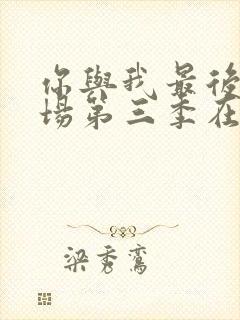 你與我最後
場第三季在
梁秀鸞